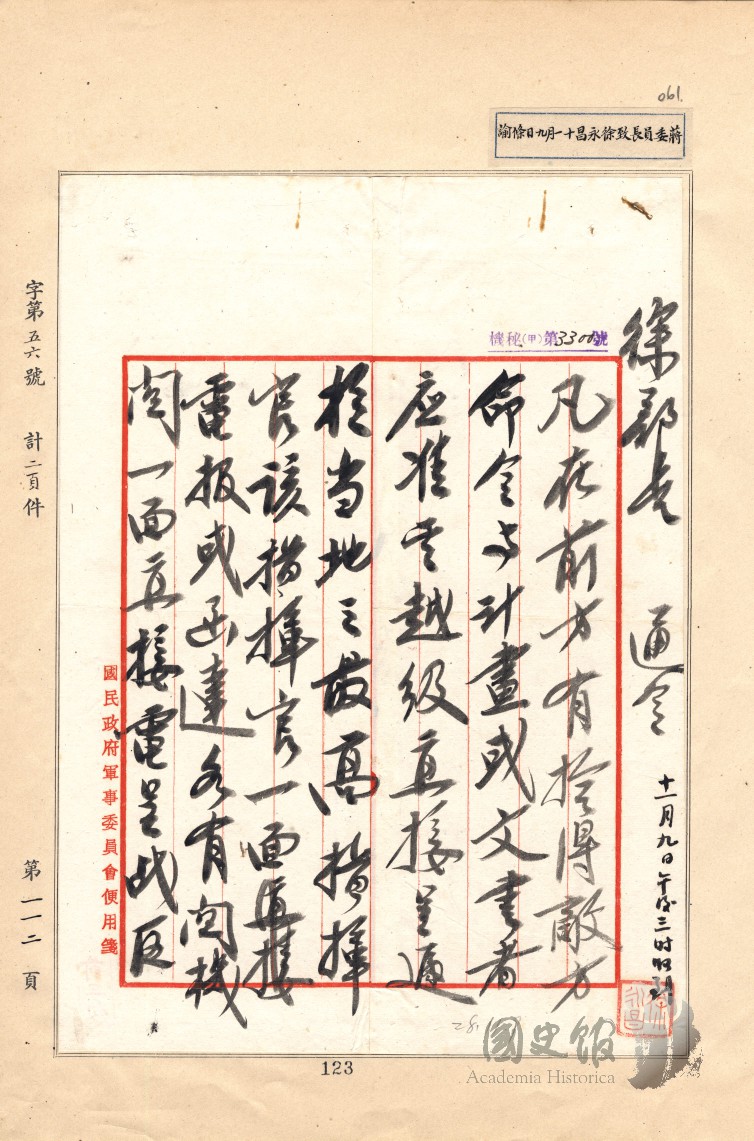 061.
蔣委員長致徐永昌十一月九日條諭
機秘(甲)第3300號
徐部長 通令
十一月九日午後三時收到
凡在前方有拾得敵方
命令与計畫或文書者
应准其越級直接呈遞
於当地之最高指揮
官該指揮官一面直接
電报或函達各有関機
関一面直接電呈战区
國民政府軍事委員會便用箋
字第五六號 計二頁件
第一一二頁
123
28.
國史館
Academia Historica